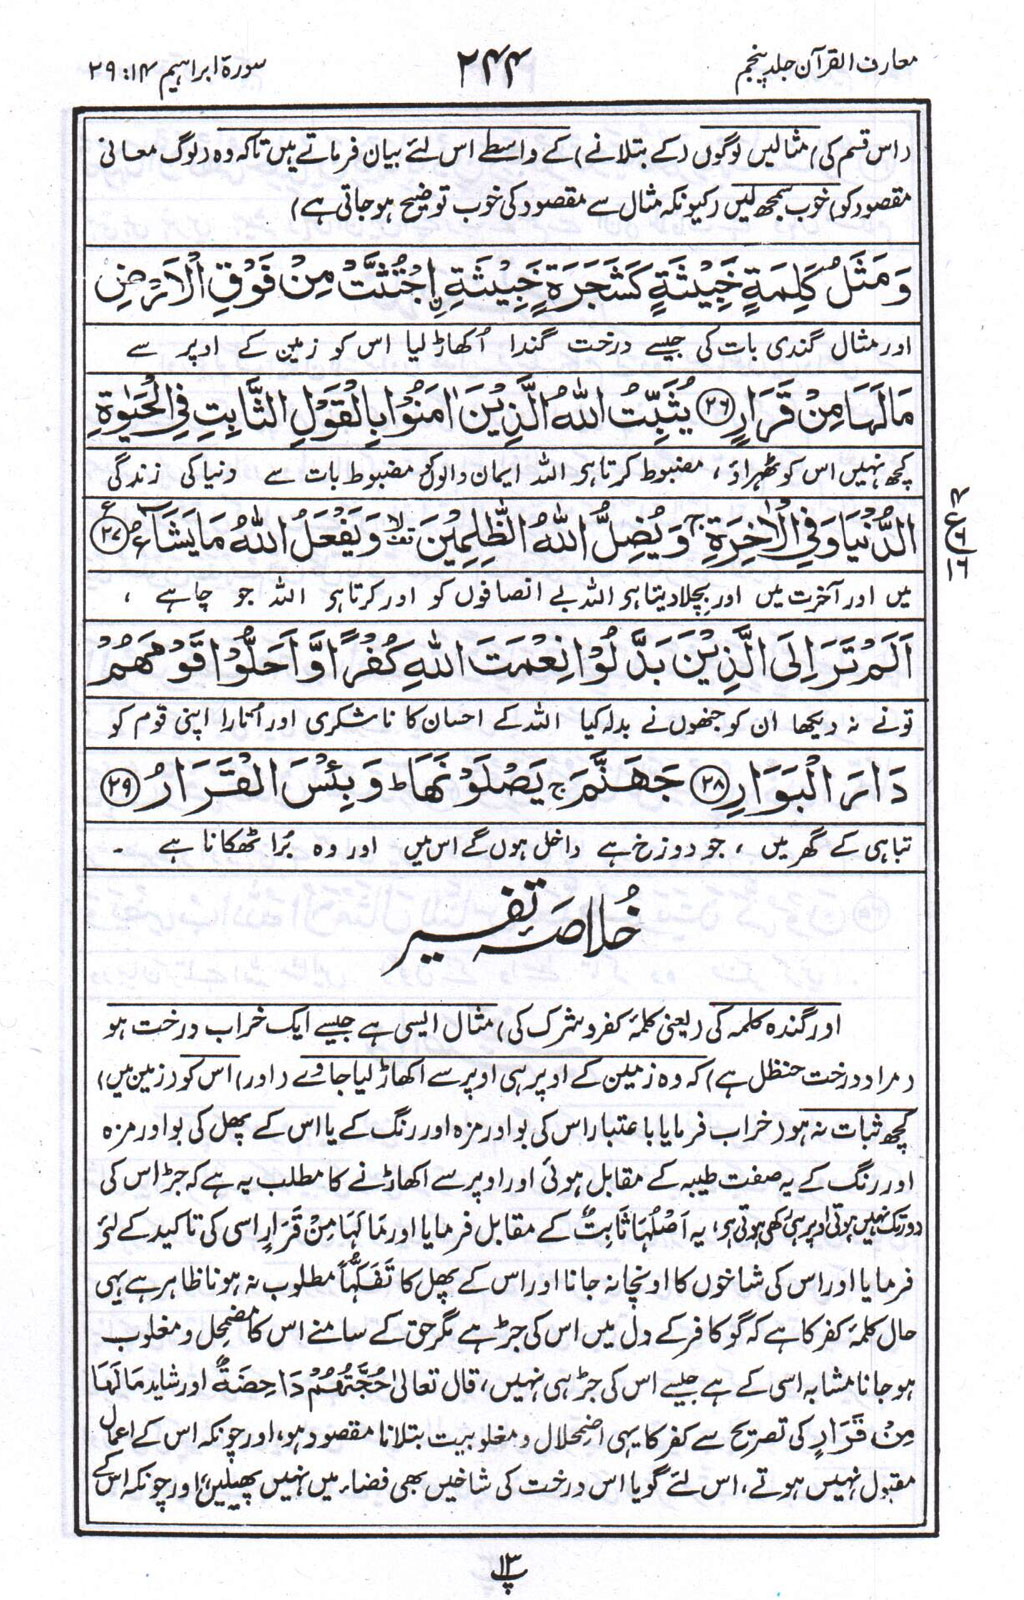 معارف القرآن جلد پنجم
۲۴۴
سورۃ ابراہیم ۱۴ : ۲۹
(اس قسم کی) مثالیں لوگوں (کے بتلانے) کے واسطے اس لئے بیان فرماتے ہیں تاکہ وہ (لوگ معانی
مقصود کو) خوب سمجھ لیں (کیونکہ مثال سے مقصود کی خوب توضیح ہو جاتی ہے)
وَمَثَلُ كَلِمَةٍ خَبِيْثَةٍ كَشَجَرَةٍ خَبِيْثَةِ ِۨاجْتُثَّتْ مِنْ فَوْقِ الْاَرْضِ
اور مثال گندی بات کی جیسے درخت گندا اُکھاڑ لیا اس کو زمین کے اوپر سے
مَا لَهَا مِنْ قَرَارٍ ﴿۲۶﴾ يُثَبِّتُ اللّٰهُ الَّذِيْنَ اٰمَنُوْا بِالْقَوْلِ الثَّابِتِ فِي الْحَيٰوةِ
کچھ نہیں اس کو ٹھہراؤ ، مضبوط کرتا ہے اللہ ایمان والوں کو مضبوط بات سے دنیا کی زندگی
الدُّنْيَا وَفِي الْاٰخِرَةِ ۚ وَيُضِلُّ اللّٰهُ الظّٰلِمِيْنَ ۙ وَيَفْعَلُ اللّٰهُ مَا يَشَآءُ ﴿۲۷﴾
ع ۴ ۶ ۱۶
میں اور آخرت میں اور بچلا دیتا ہے اللہ بے انصافوں کو اور کرتا ہے اللہ جو چاہے ،
اَلَمْ تَرَ اِلَى الَّذِيْنَ بَدَّلُوْا نِعْمَتَ اللّٰهِ كُفْرًا وَّاَحَلُّوْا قَوْمَهُمْ
تو نے نہ دیکھا ان کو جنھوں نے بدلہ کیا اللہ کے احسان کا ناشکری اور اُتارا اپنی قوم کو
دَارَ الْبَوَارِ ﴿۲۸﴾ جَهَنَّمَ ۚ يَصْلَوْنَهَا ؕ وَبِئْسَ الْقَرَارُ ﴿۲۹﴾
تباہی کے گھر میں ، جو دوزخ ہے داخل ہوں گے اس میں اور وہ بُرا ٹھکانا ہے ۔
خُلاصۂ تفسیر
اور گندہ کلمہ کی (یعنی کلمۂ کفر و شرک کی) مثال ایسی ہے جیسے ایک خراب درخت ہو
(مراد درخت حنظل ہے) کہ وہ زمین کے اوپر ہی اوپر سے اکھاڑ لیا جاوے (اور) اس کو (زمین میں)
کچھ ثبات نہ ہو (خراب فرمایا باعتبار اس کی بو اور مزہ اور رنگ کے یا اس کے پھل کی بو اور مزہ
اور رنگ کے یہ صفت طیبہ کے مقابل ہوئی اور اوپر سے اکھاڑنے کا مطلب یہ ہے کہ جڑ اس کی
دور تک نہیں ہوتی اوپر ہی رکھی ہوتی ہے، یہ اَصْلُهَا ثَابِتٌ کے مقابل فرمایا اور مَا لَهَا مِنْ قَرَارٍ اسی کی تاکید کے لئے
فرمایا اور اس کی شاخوں کا اونچا نہ جانا اور اس کے پھل کا تَفَكُّهًا مطلوب نہ ہونا ظاہر ہے یہی
حال کلمۂ کفر کا ہے کہ گو کافر کے دل میں اس کی جڑ ہے مگر حق کے سامنے اس کا مضمحل و مغلوب
ہو جانا مشابہ اسی کے ہے جیسے اس کی جڑ ہی نہیں، قال تعالیٰ حُجَّتُهُمْ دَاحِضَةٌ اور شاید مَا لَهَا
مِنْ قَرَارٍ کی تصریح سے کفر کا یہی اضمحلال و مغلوبیت بتلانا مقصود ہو، اور چونکہ اس کے اعمال
مقبول نہیں ہوتے، اس لئے گویا اس درخت کی شاخیں بھی فضاء میں نہیں پھیلیں، اور چونکہ اس کے
پ ۱۳